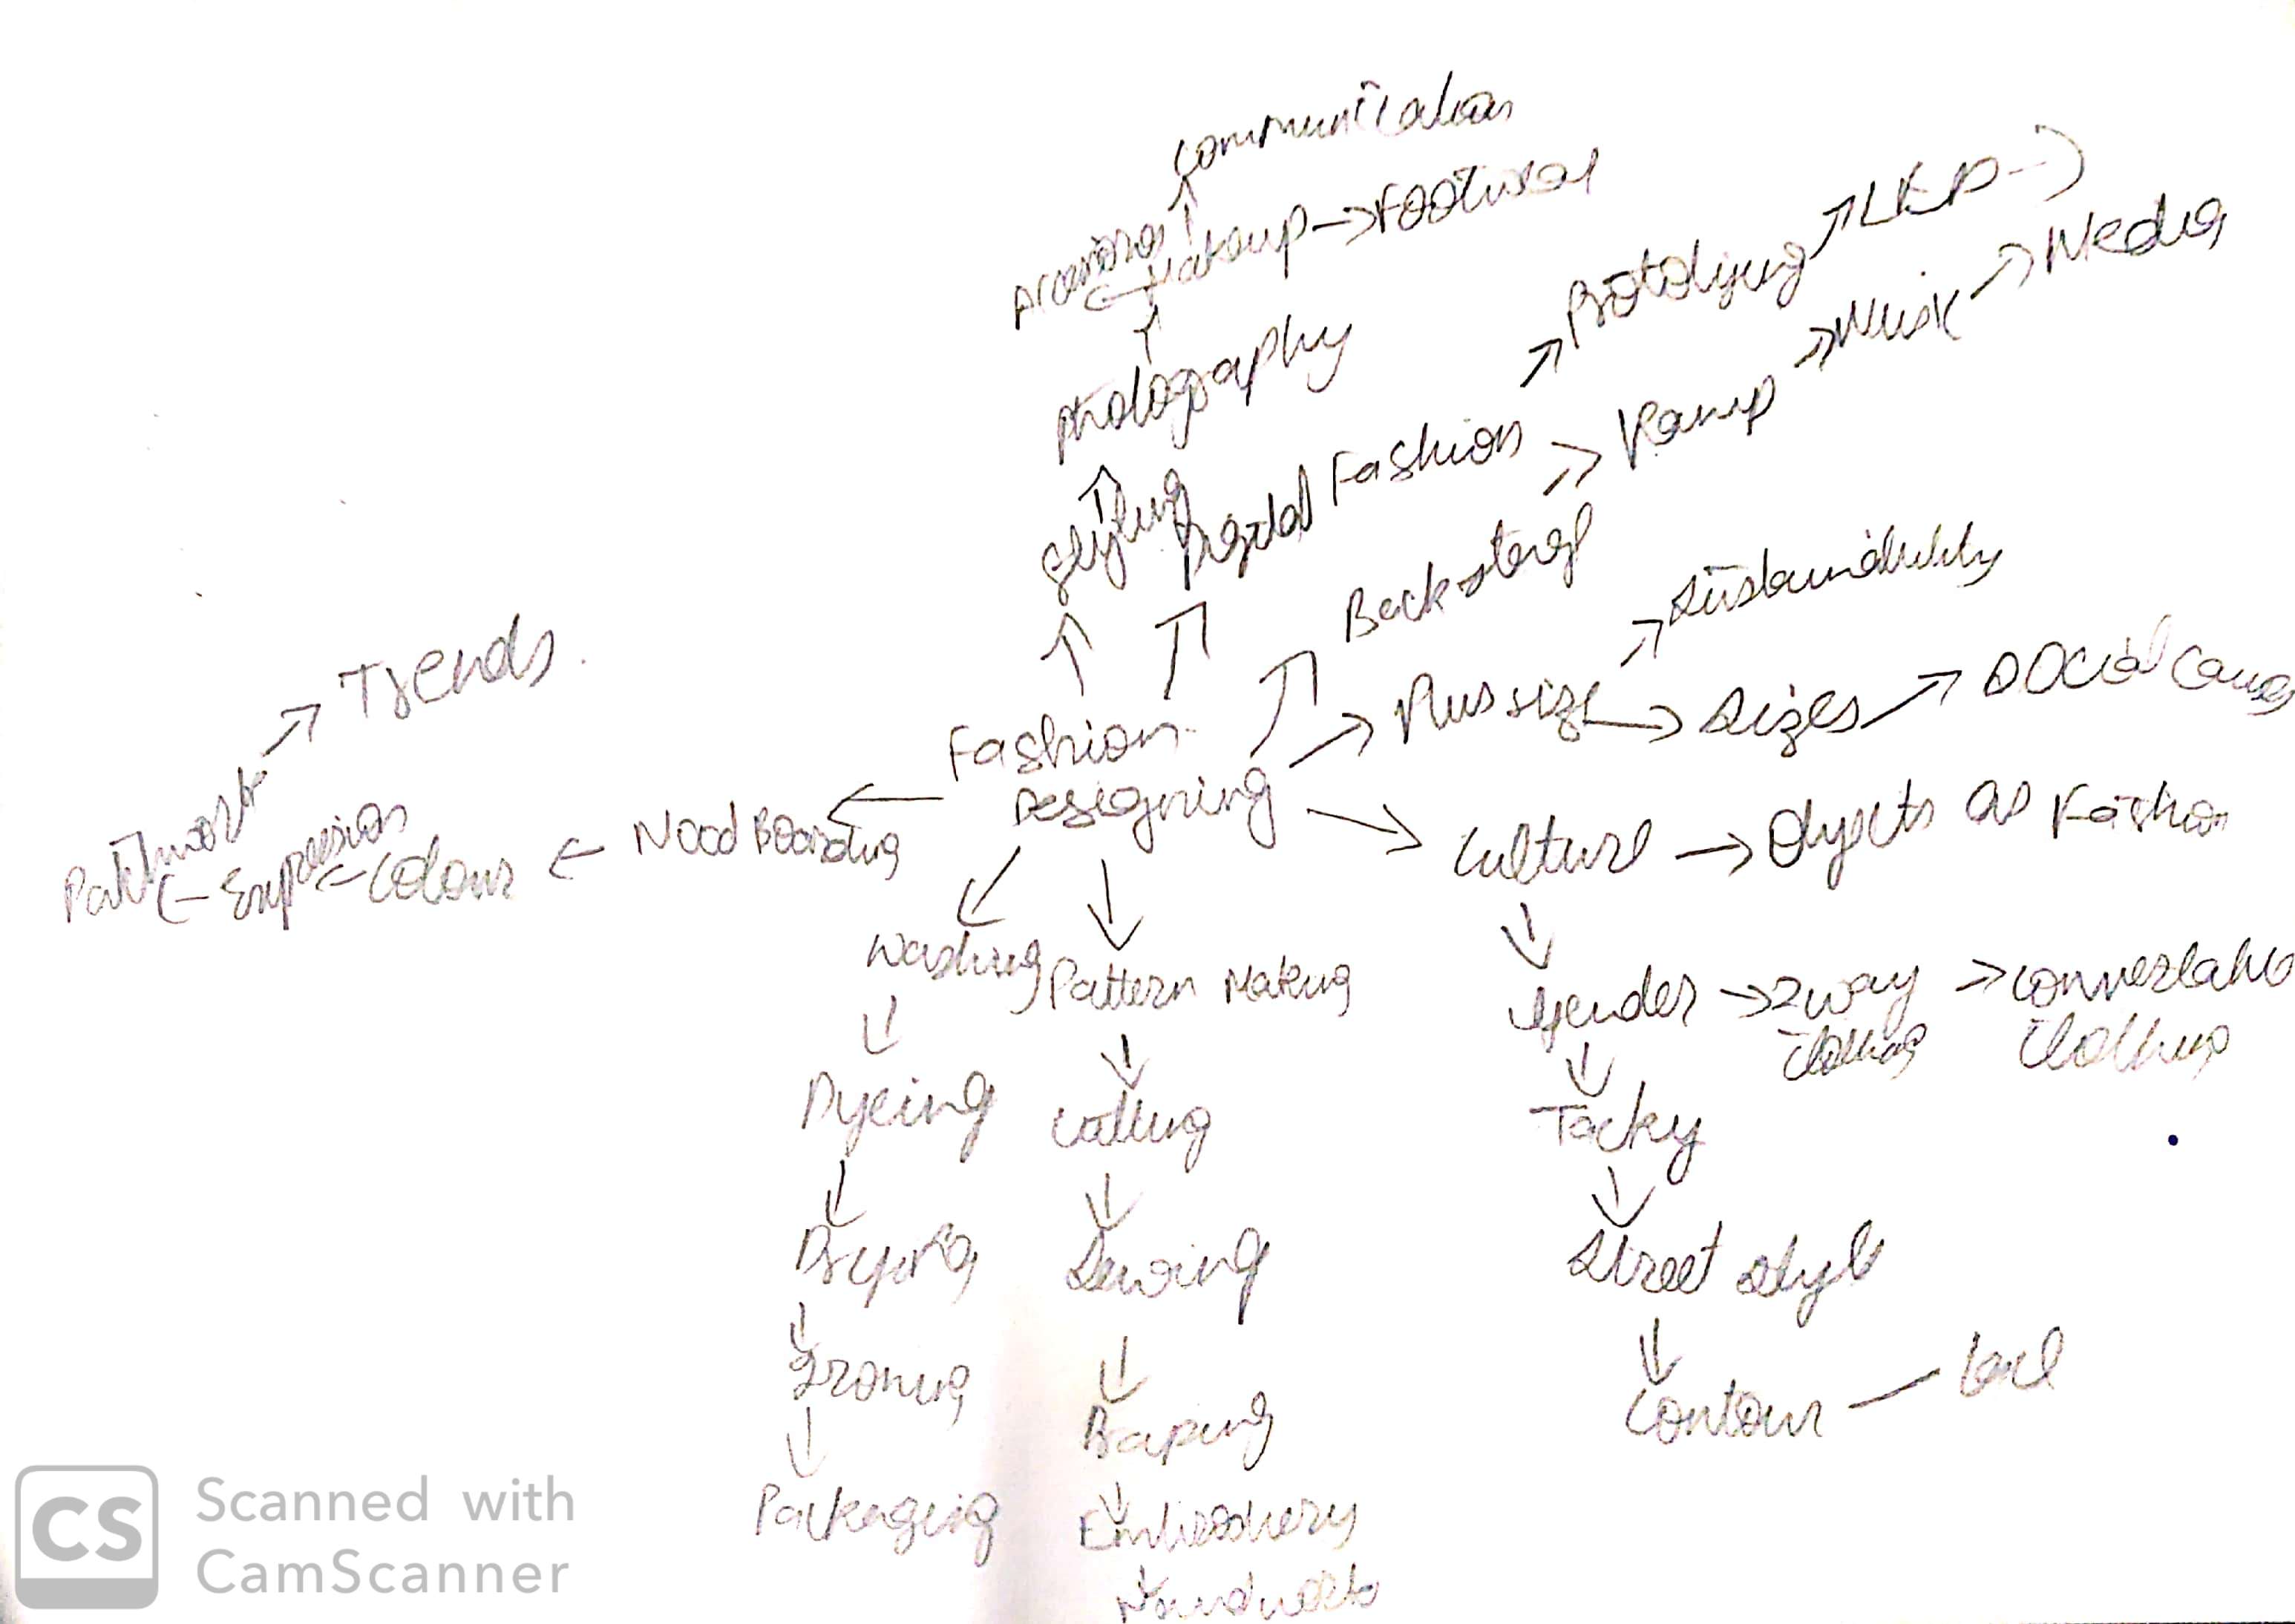 communication
Makeup → Footwear
Photography
Styling
Digital Fashion
Prototyping
LKP
Backstage
Ramp
Music
Media
Trends
Patchwork
← Expression
← Colour
← Mood Boarding
Fashion
Designing
Plus size
Sustainability
→ Sizes
Social causes
Culture → Objects as Fashion
Gender → 2 way → convertable
clothing clothing
Tacky
Street style
Contour
Washing
Dyeing
Drying
Ironing
Packaging
Pattern Making
Cutting
Sewing
Draping
Embroidery
Handwork
CS Scanned with
CamScanner